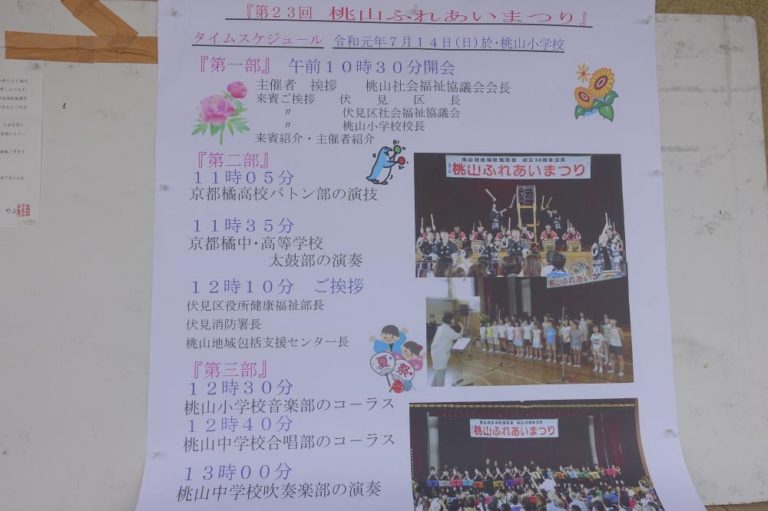 『第23回 桃山ふれあいまつり』
タイムスケジュール 令和元年7月14日(日)於・桃山小学校
『第一部』 午前10時30分開会
主催者 挨拶 桃山社会福祉協議会会長
来賓ご挨拶 伏見区長
〃 伏見区社会福祉協議会
〃 桃山小学校校長
来賓紹介・主催者紹介
『第二部』
11時05分
京都橘高校バトン部の演技
11時35分
京都橘中・高等学校
太鼓部の演奏
12時10分 ご挨拶
伏見区役所健康福祉部長
伏見消防署長
桃山地域包括支援センター長
夏祭
『第三部』
12時30分
桃山小学校音楽部のコーラス
12時40分
桃山中学校合唱部のコーラス
13時00分
桃山中学校吹奏楽部の演奏
桃山ふれあいまつり
桃山ふれあいまつり